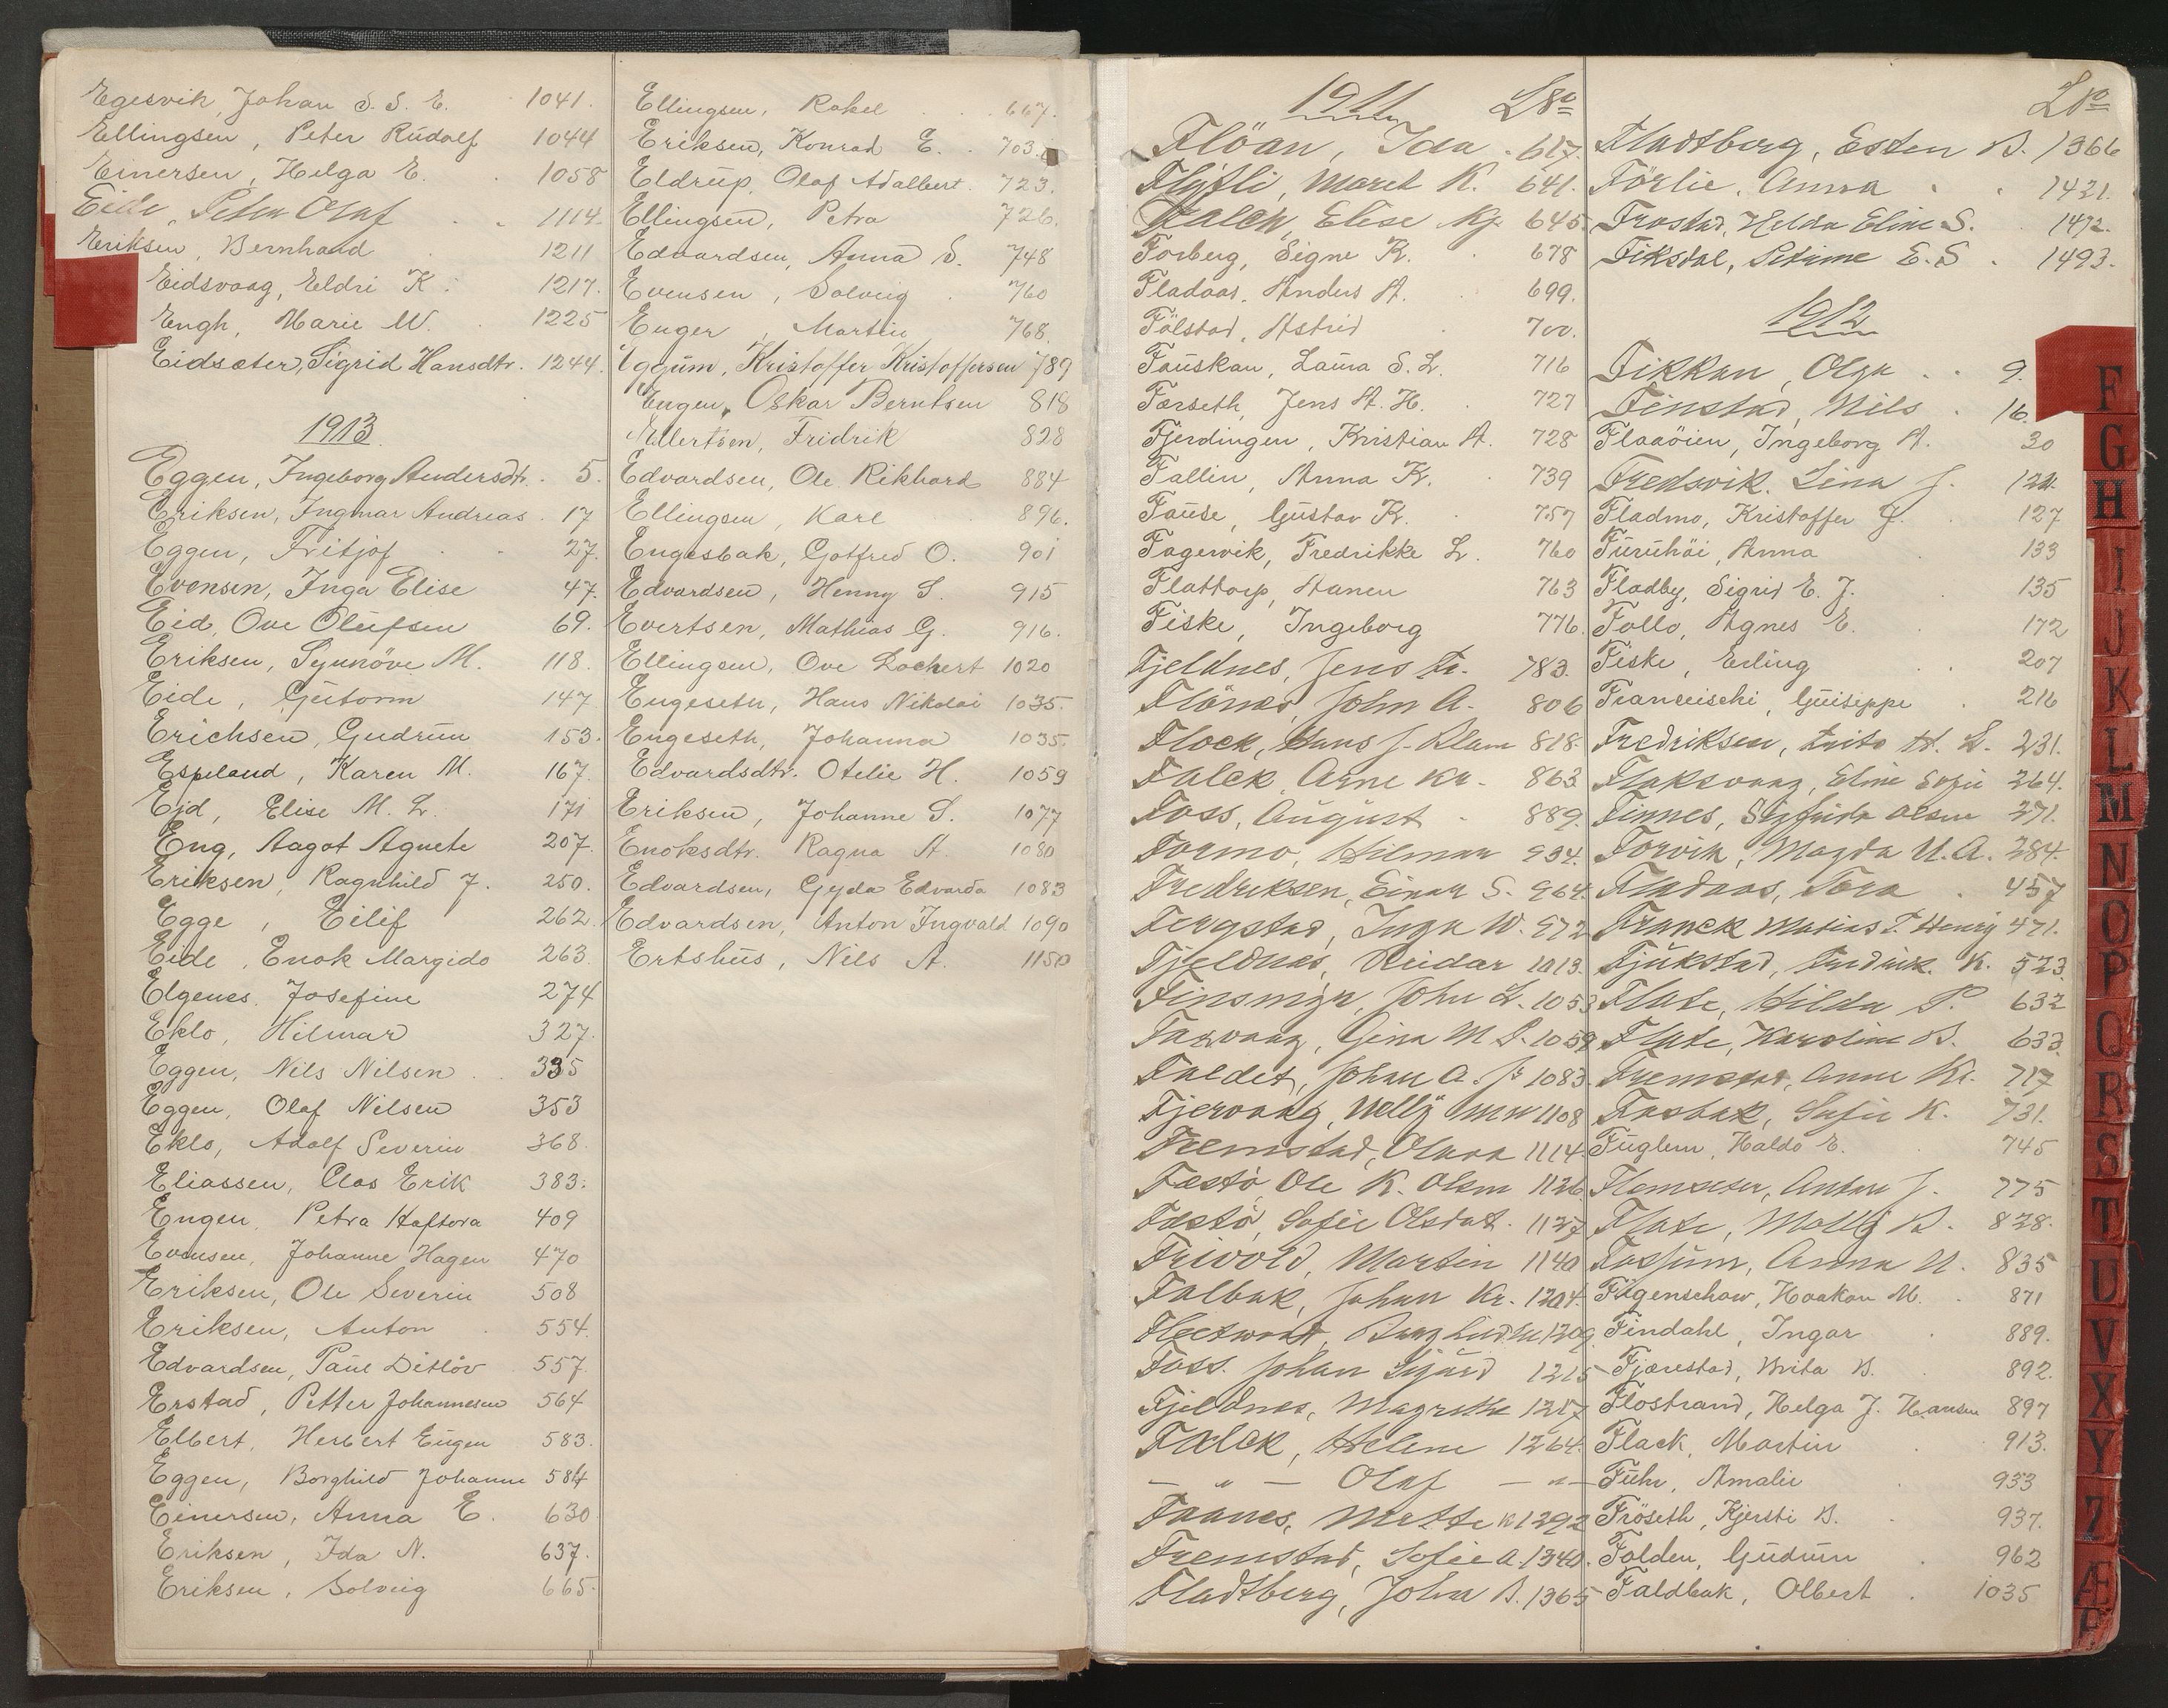 Egesvik, Johan S. S. E. 1041.
Ellingsen, Peter Rudolf 1044
Einersen, Helga E. 1058
Eide, Peter Olaf 1114.
Eriksen, Bernhard 1211
Eidsvaag, Eldri K. 1217.
Engh, Marie M. 1225
Eidsæter, Sigrid Hansdtr. 1244.
1913.
Eggen, Ingeborg Andersdtr. 5.
Eriksen, Ingmar Andreas 17
Eggen, Fritjof 27.
Evensen, Inga Elise 47.
Eid, Ove Olufsen 69.
Eriksen, Synnöve M. 118.
Eide, Gutorm 147
Erichsen, Gudrun 153.
Espeland, Karen M. 167.
Ejd, Elise M. L. 171
Eng, Aagot Agnete 207.
Eriksen, Ragnhild J. 250.
Egge, Eilif 262.
Eide, Enok Margido 263.
Elgenes, Josefine 274
Eklo, Hilmar 327.
Eggen, Nils Nilsen 335
Eggen, Olaf Nilsen 353
Eklo, Adolf Severin 368.
Eliassen, Clas Erik 383.
Engen, Petra Haftora 409
Evensen, Johanne Hagen 470
Eriksen, Ole Severin 508
Eriksen, Anton 554.
Edvardsen, Paul Ditlöv 557.
Erstad, Petter Johannesen 564
Elbert, Herbert Eugen 583.
Eggen, Borghild Johanne 584
Einersen, Anna E. 630
Eriksen, Ida N. 637.
Eriksen, Solveig 665.
Ellingsen, Rakel 667.
Eriksen, Konrad E. 703.
Eldrup, Olaf Adalbert. 723.
Ellingsen, Petra 726.
Edvardsen, Anna S. 748
Evensen, Solveig 760
Enger, Martin 768.
Eggum, Kristoffer Kristoffersen 789
Engen, Oskar Berntsen 818
Ellertsen, Fridrik 828
Edvardsen, Ole Rikhard 884
Ellingsen, Karl 896.
Engesbak, Gotfred O. 901
Edvardsen, Henny S. 915
Evertsen, Mathias G. 916.
Ellingsen, Ove Lockert 1020
Engeseth, Hans Nikolai 1035.
Engeseth, Johanna 1035.
Edvardsdtr. Otelie H. 1059
Eriksen, Johanne S. 1077
Enoksdtr. Ragna A. 1080
Edvardsen, Gyda Edvarda 1083
Edvardsen, Anton Ingvald 1090
Ertshus, Nils A. 1150
1911 L8º
Flöan, Ida 617.
Flytli, Maret K. 641.
Falch, Elise Kj. 645.
Forberg, Signe K. 678
Fladaas, Anders A. 699.
Fölstad, Astrid 700.
Fauskan, Laura S. L. 716
Forseth, Jens A. H. 727
Fjerdingen, Kristian A. 728
Fallin, Anna K. 739
Fause, Gustav K. 757
Fagervik, Fredrikke L. 760
Flattorp, Hanen 763
Fiske, Ingeborg 776.
Fjeldnes, Jens Fr. 783.
Flönes, John A. 806
Flock, Hans J. Klam 818.
Falck, Arne Kr. 863
Foss, August 889.
Formo, Hilmar 934.
Fredriksen, Einar S. 964.
Fergstad, Inga W. 972
Fjeldnes, Reidar 1013.
Finsmyr, John L. 1053
Faxvaag, Gina M. P. 1059
Faldet, Johan A. 1083.
Fjervaag, Nelly 1108
Fremstad, Olava 1114.
Fæstö, Ole K. Olsen 1126.
Fæstö, Sofie Olsdat. 1127
Frivold, Martin 1140
Falbak, Johan Kr. 1204.
1209.
Foss. Johan Sigurd 1215
Fjeldnes, Magrethe 1217
Falck, Helene 1264.
— " — Olaf — " —
Faanes, Mette K. 1292
Fremstad, Sofie A. 1340.
Fladtberg, John B. 1365
L8º
Fladtberg, Esten B. 1366
Förlie, Anna 1421.
Frostad, Helda Eline S. 1492.
Fiksdal, Petrine E. S. 1493.
1912
Fikkan, Olga 9.
Finstad, Nils 16.
Flaaöien, Ingeborg A. 30
Fredsvik. Lina J. 121.
Fladmo, Kristoffer J. 127
Furuhöi, Anna 133
Fladby, Sigrid E. J. 135
Follo, Agnes E. 172
Fiske, Erling 207
Franceischi, Guiseppe 216
Fredriksen, Frits H. L. 231.
Flaksvaag, Eline Sofie 264.
Finnes, Sigfrida Olsen 271.
Forvik, Magda U. A. 284.
Fladaas, Tora 457
Franck Matias P. Henry 471.
Fjukstad, Fredrik. K. 523.
Flate, Hilda P. 632
Flate, Karoline B. 633.
Fremstad, Anne Kr. 717
Fosbak, Sofie K. 731.
Fuglem, Haldo E. 745
Flemseter, Anton J. 775
Flate, Molly B. 828.
Fossum, Anna U. 835
Figenschow, Haakon M. 871
Findahl, Ingar 889.
Fjærestad, Brita B. 892.
Flostrand, Helga J. Hansen 897
Flack, Martin 913.
Fuhr, Amalie 933
Fröseth, Kjersti B. 937.
Folden, Gudrun 962
Faldbak, Olbert 1035
F
G
H
I
J
K
L
M
N
O
P
Q
R
S
T
U
V
X
Y
Z
Æ